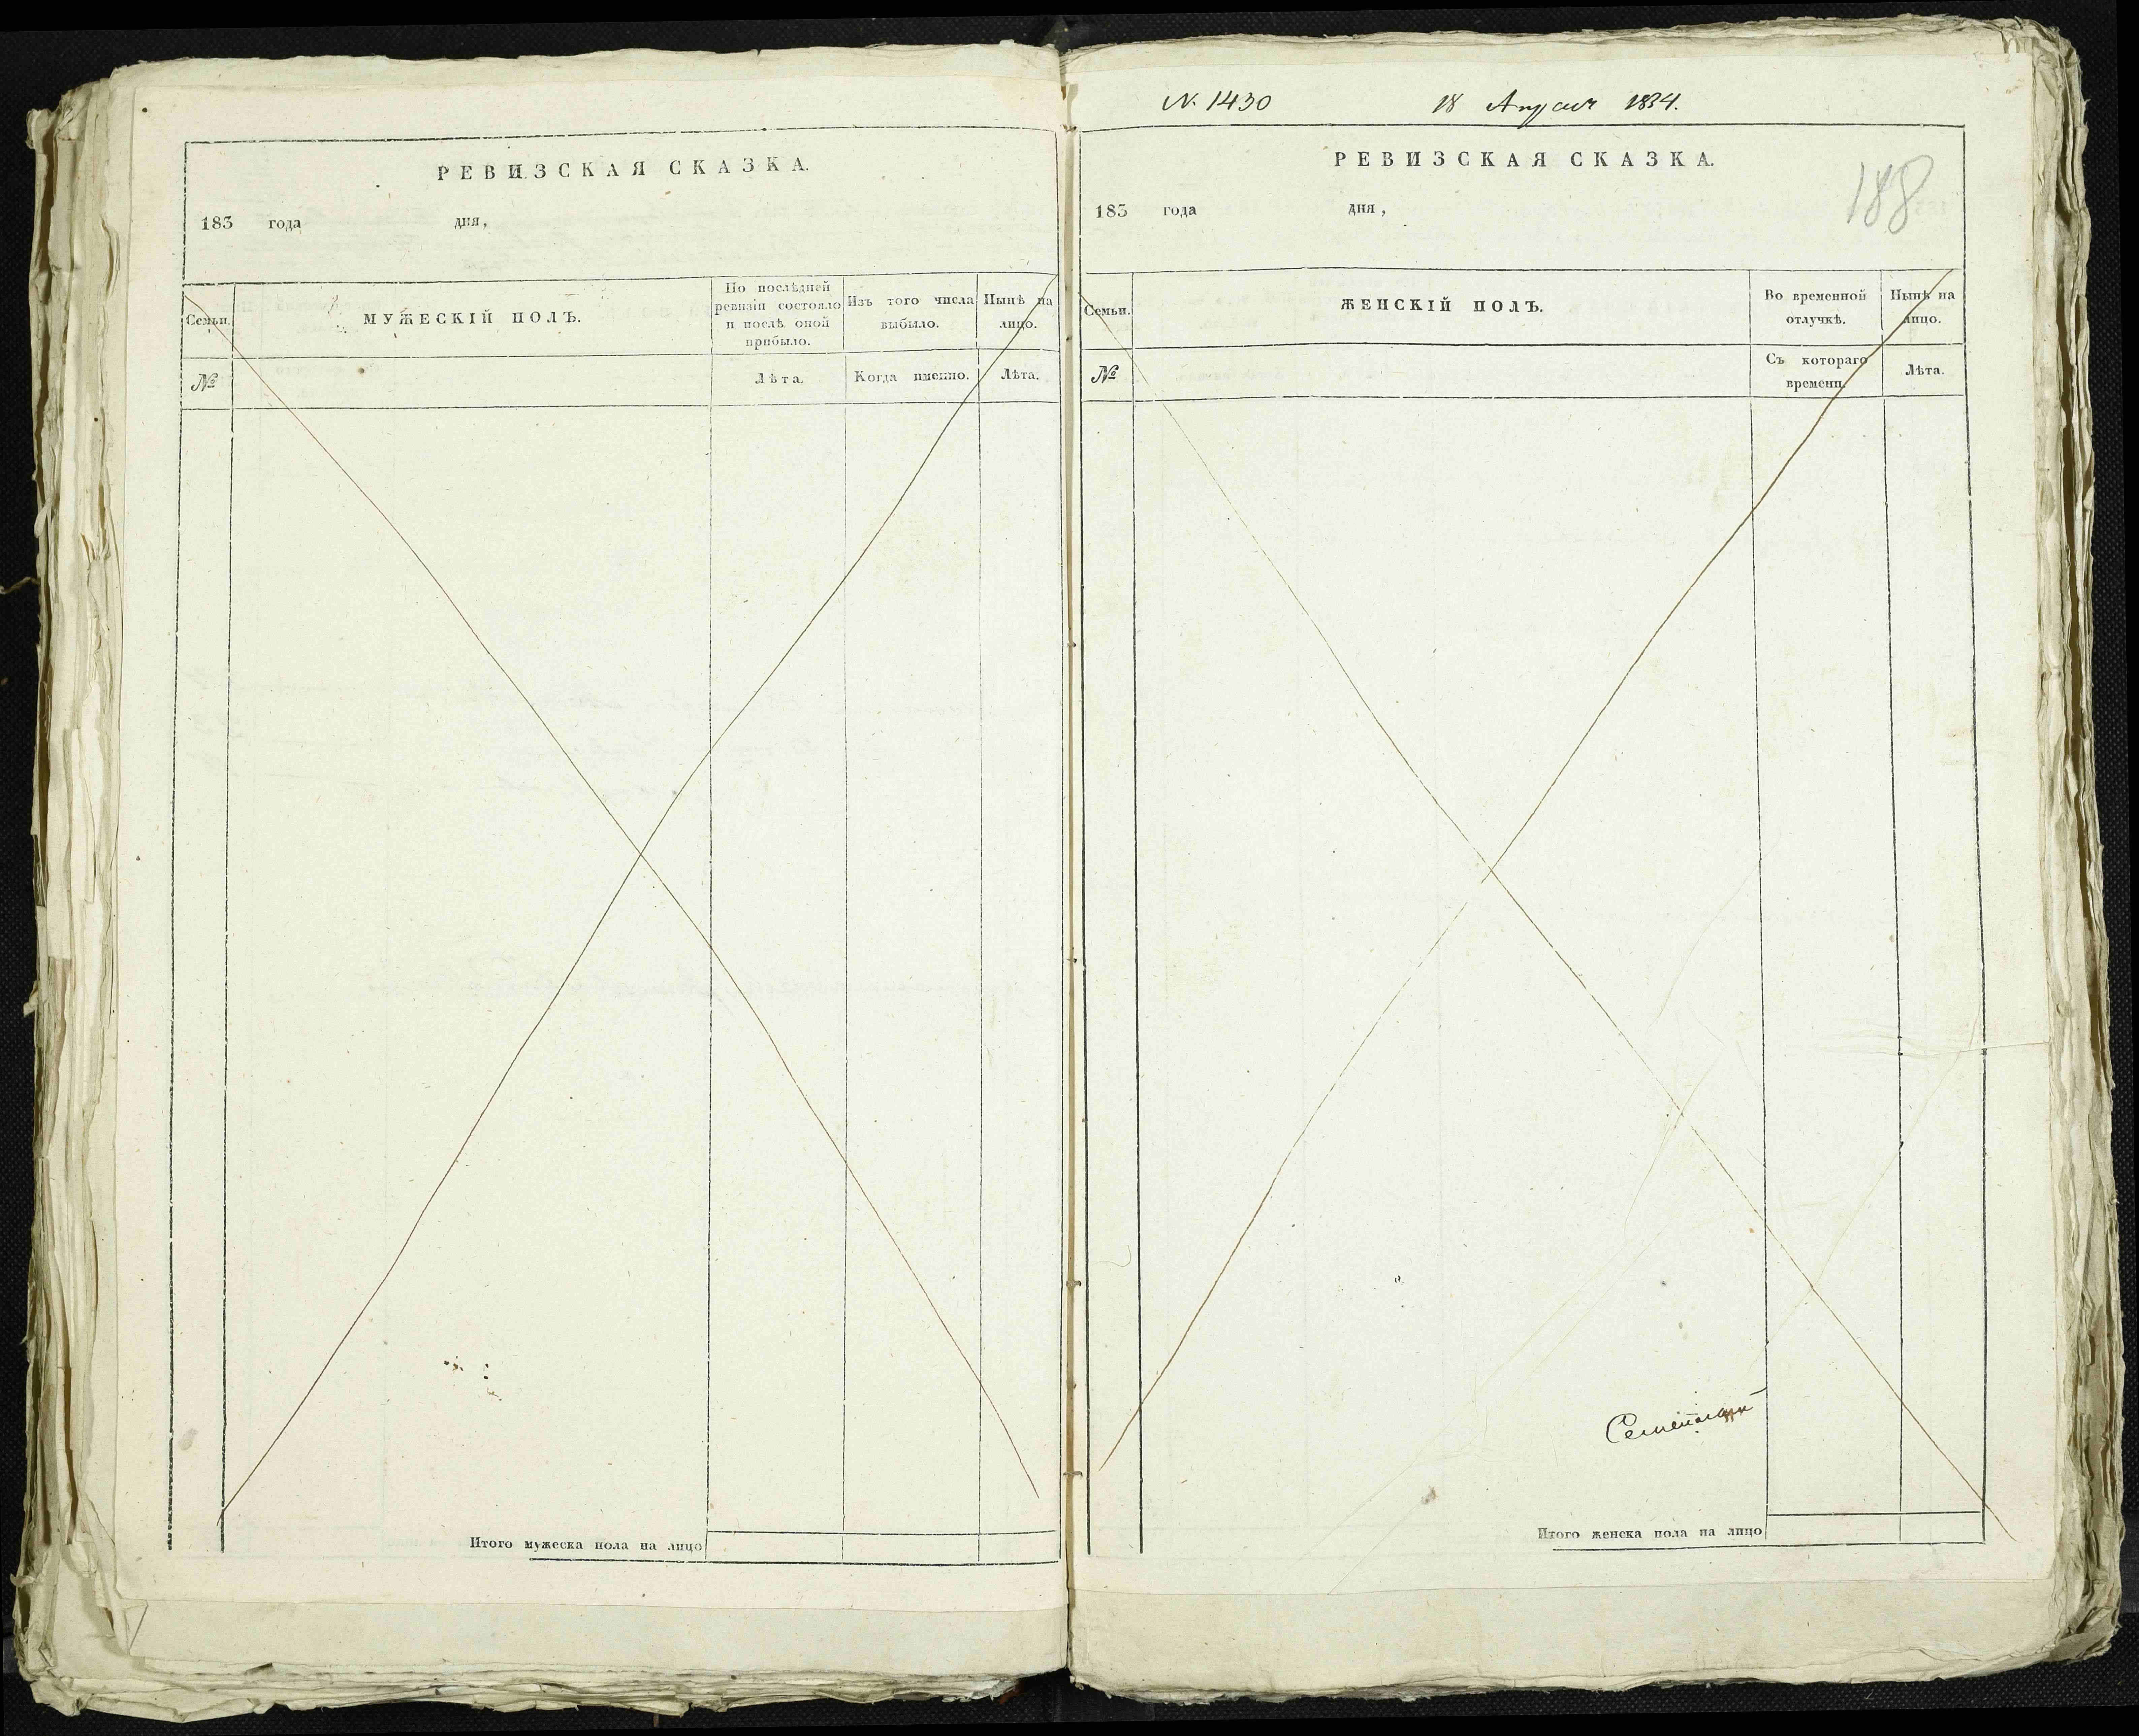 РЕВИЗСКАЯ СКАЗКА.
183 года дня,
Семьи.
МУЖЕСКІЙ ПОЛЪ.
По послѣдней ревизіи состояло и послѣ оной прибыло.
Изъ того числа выбыло.
Нынѣ на лицо.
№
Лѣта.
Когда именно.
Лѣта.
Итого мужеска пола на лицо
N. 1430 18 Апреля 1834.
РЕВИЗСКАЯ СКАЗКА.
188
183 года дня,
Семьи.
ЖЕНСКІЙ ПОЛЪ.
Во временной отлучкѣ.
Нынѣ на лицо.
№
Съ котораго времени.
Лѣта.
Итого женска пола на лицо